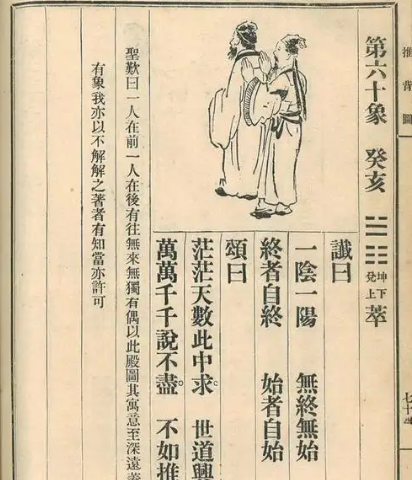 推背圖
第六十象 癸亥 ☱☷ 坤下兌上 萃
讖曰
一陰一陽 無終無始
終者自終 始者自始
頌曰
茫茫天數此中求 世道興
萬萬千千說不盡 不如推
聖歎曰一人在前一人在後有往無來無獨有偶以此殿圖其寓意至深遠
有象我亦以不解解之著者有知當亦許可